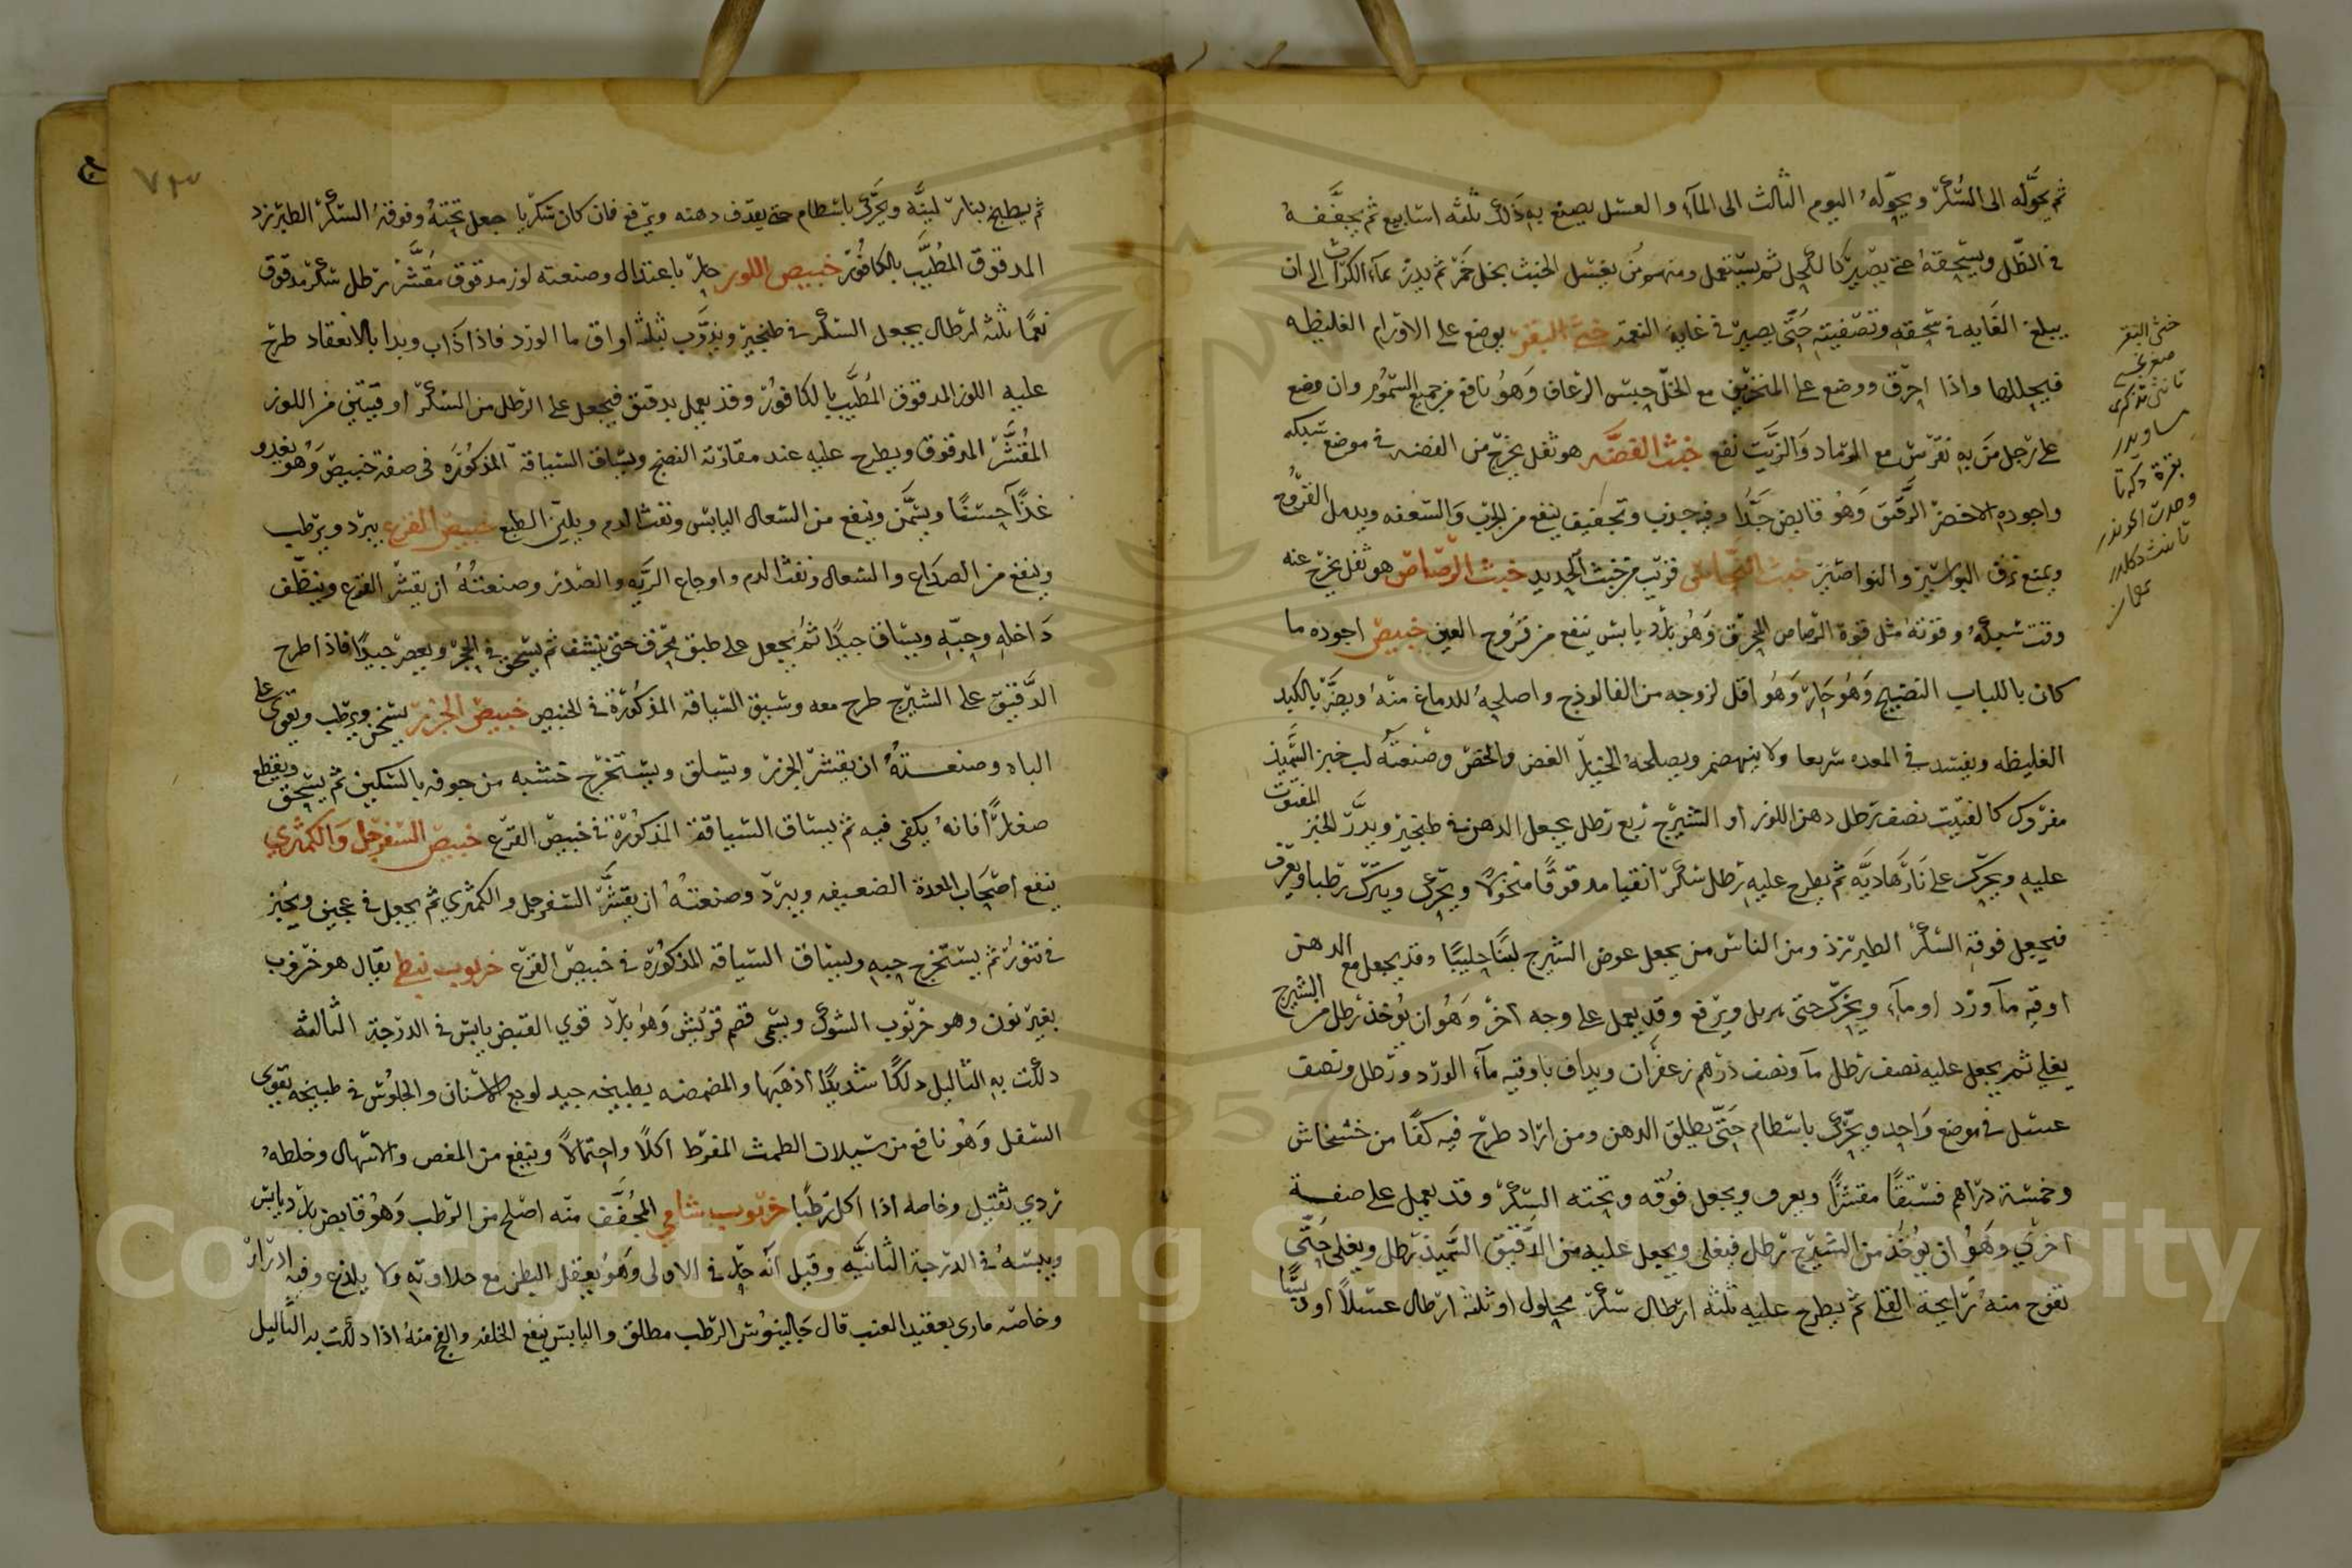 ثم يحوّله الى السُّكرّ ويحوّلهُ اليوم الثالث الى المآءِ والعسل يصنع بهِ ذَلكَ ثلثه اسابيع ثم يجفّفهُ
في الظّل ويسحقهُ حتى يصير كالكحل ثم يستعمل ومنهم من يغسل الخبث بخل خَمر ثم يدبّر بمآء الكرّاث الى ان
يبلغ الغَايه في سَحقهِ وتصفيتهِ حَتّى يصير في غاية النعمة خثي البقر يوضع على الاورام الغليظه
فيحللها واذا احرق ووضع على المنخرين مع الخلّ حبس الرعاف وَهوُ نافع من جميع السّمُوم وان وضع
على رجل مَن بهِ نقرس مع الرّماد وَالزّيَت نفع خبث الفضّه هو ثفل يخرج من الفضه في موضع سبكه
واجودهُ الاخضر الرّقيق وَهوُ قابض جَدًّا وفيه جذب وتجفيف ينفع من الجرب وَالسّعفه ويدمل القرُّوح
ويمنع نزف البواسير والنواصير خبث النحاس قريب من خبث الحديد خبث الرّصَاص هو ثفل يخرج عنه
وقت سَبكهُ وقوّتهُ مثل قوّة الرّصاص المحرق وَهُو بارد يابس ينفع من قرُوح العين خبيص اجوده ما
كان باللباب النضيج وَهُو حَار وَهُو اقل لزوجه من الفالوذج واصلحهُ للدماغ منهُ ويضرّ بالكبد
الغليظه ويفسد في المعده سريعا ولا ينهضم ويصلحهُ الخيار الغض والخصّ وصنعتهُ لب خبز السَّميذ
مفروك كالفتيت نصف رطل دهن اللوز او الشيرج ربع رطل يجعل الدهن في طنجير ويذرّ الخبز المفتوت
عليهِ ويحرّك على نار هَاديَّه ثم يطرح عليهِ رطل سُكرّ انقيا مدقوقًا منخولاً ويحرّك ويترك رطبا ويغرف
فيجعل فوقهِ السّكرّ الطبرزذ ومن الناس من يجعل عوض الشيرج لبنًا حليبًا وقد يجعل مع الدهن
اوقيه مآ ورد او مآء ويحرّك حتى ويرفع وقد يعمل على وجه اخر وَهُو ان يُوخذ رَطل من الشيرج
يغلي ثم يجعل عليه نصف رطل مآ ونصف درهم زعفرَان ويداف باوقيه مآء الورد ورَطل ونصف
عسل في موضع وَاحد ويحرّك باسطام حَتّى يطلق الدهن ومن ارَاد طرح فيه كفًا من خشخاش
وخمسَة درَاهم فستقًا مقشرًا ويغرف ويجعل فوقه وتحته السّكرّ وقد يعمل على صفة
اخري وَهُوُ ان يُوخذ من الشيرج رطل فيغلى ويجعل عليه من الدّقيق السّميذ رطل ويغلى حَتّى
تفوح منهُ رَايحة القلي ثم يطرح عليه ثلثة ارطال سكرّ محلول او ثلثه ارطال عسلاً او دبسًا
خثى البقر
صغر
ساويدر
بقرة
ثم يطبخ بنار ليّنَه ويحرَّك باسطام حتى يقذف دهنه ويرفع فان كان سكريا جعل تحتهُ وفوقهُ السّكرّ الطبرزد
المدقوق المطَيَّب بالكافُور خبيص اللوز حار باعتدال وصنعته لوز مدقوق مقشّر رطل سكر مدقوق
نعمًا ثلثه ارطال يجعل السكر في طنجير ويذوَّب بثلثه اواق ما الورد فاذا ذَاب وبدا بالانعقاد طرح
عليه اللوز المدقوق المُطَيَّب بالكافُور وقد يعمل بدقيق فيجعل على الرطل من السكرّ اوقيتين من اللوز
المقُشَّر المدقوق ويطرح عليه عند مقاربة النضج ويسَاق السياقة المذكوُرَه في صفة خبيص وَهُو يغدو
غذآ حسنًا ويسَمّن وينفع من السّعال اليابس ونفث الدم ويليّن الطبع خبيص القرع يبرد ويرطب
وينفع من الصدَاع والسّعال ونفث الدم واوجاع الريَه والصَدر وصنعتُهُ ان يقشّر القرع وينظّف
دَاخلهِ وحبّهِ ويسَاق جيدًا ثم يجعل على طبق خزف حتى ينشف ثم يسحق في الحجر ويعصر جيدًا فاذا طرح
الدَّقيق على الشيرج طرح معه وسيق السَياقه المذكوُرَة في الخبيص خبيص الجزر يسخن ويرطب ويقوي على
الباه وصنعتهُ ان يقشر الجزر ويسلق ويستخرج خشبه من جوفه بالسّكين ثم يسحق ويقطع
صغارًا فانهُ يكفى فيه ثم يساق السياقة المذكوُرَة في خبيص القرع خبيص السفرجل وَالكمثري
ينفع اصحَاب المعدة الضعيفه ويبرّد وصنعتهُ ان يقشّر السّفرجل والكمثري ثم يجعل في عجين ويخبز
في تنور ثم يستخرج حبه ويسَاق السياقه المذكوُرَة في خبيص القرع خرنوب نبطي يقال هو خرّوب
بغير نون وهو خرّنوب الشوك ويسَمى قضم قريش وَهوُ بارد قوي القبض يابس في الدرجة الثالثه
دلكت بهِ الثاليل دلكًا شديدًا اذهبَها والمضمضه بطبيخه جيد لوجع الاسنان والجلوُس في طبيخه يقوي
السّفل وَهُو نافع من سَيلان الطمث المفرط اكلاً واحتمالاً وينفع من المغص والاسهال وخلطهُ
ردي ثقيل وخاصه اذا اكل رَطبًا خرنوب شامي المجُفَّف منه اصلح من الرطب وَهُو قابض بارد يابس
ويبسَهُ في الدرجة الثانيَه وقيل انه حار في الاولى وَهُو يعقل البطن مع حلاوتهِ ولا يلذع وفيه ادرار
وخاصه ماربي بعقيد العنب قال جَالينوُس الرّطب مطلق واليابس ينفع الخلفه والفج منهُ اذا دلكت به الثَاليل